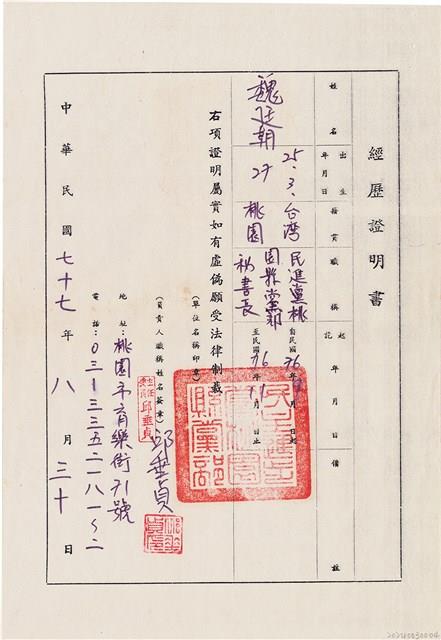 經歷證明書
姓名
出生年月日
籍貫
職稱
起訖年月日
備註
魏廷朝
25.3.27
台湾桃園
民進黨桃園縣黨部秘書長
自民國76年 月 日起
至民國76年11月 日止
右項證明屬實如有虛偽願受法律制裁
(單位名稱印章)
(負責人職稱姓名簽章)
主任委員 邱垂貞
邱垂貞
地址:桃園市育樂街71號
電話:03-3352181~2
中華民國七十七年八月三十日